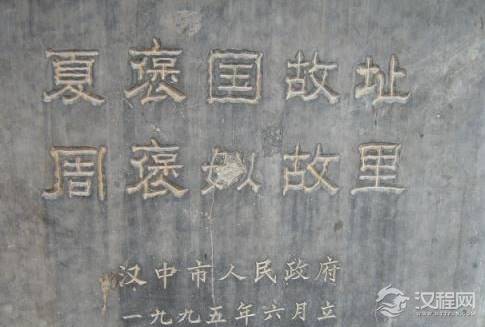 夏褒国故址
周褒姒故里
汉中市人民政府
一九九五年六月立
汉程网
HTTPCN.COM